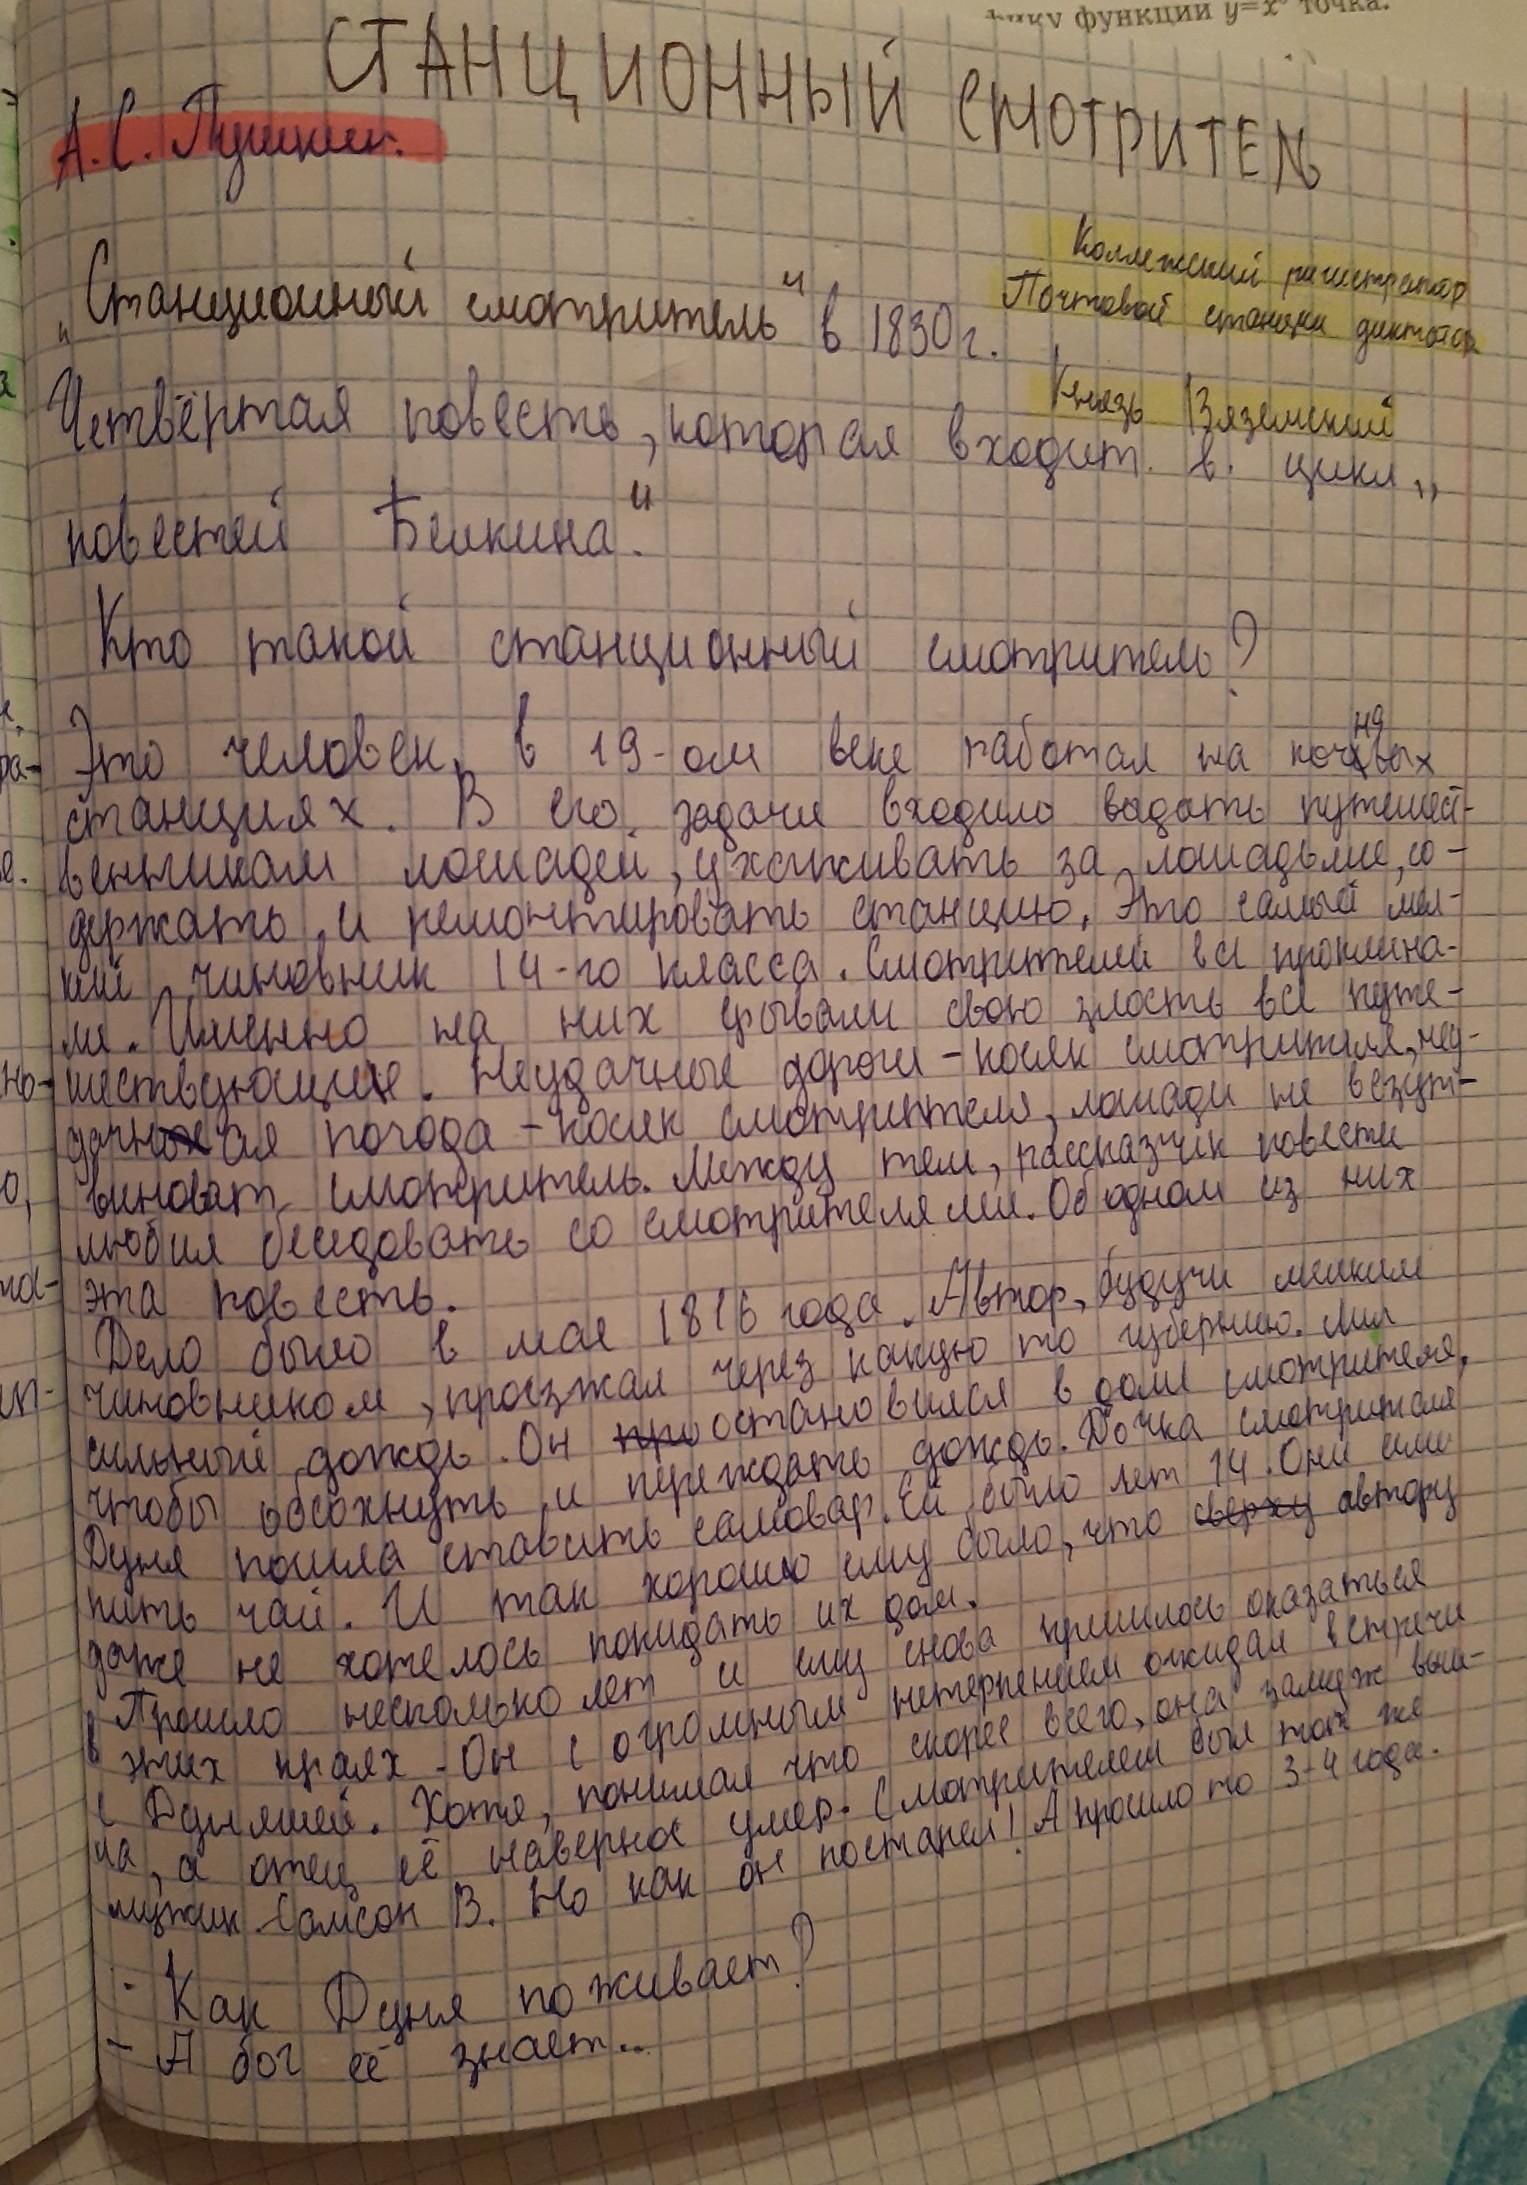 фику функции y=x³ точка.
СТАНЦИОННЫЙ СМОТРИТЕЛЬ
А.С. Пушкин.
Коллежский регистратор
Почтовой станции диктатор
Князь Вяземский
„Станционный смотритель“ в 1830г.
Четвёртая повесть, которая входит в цикл „
повестей Белкина“.
Кто такой станционный смотритель?
Это человек, в 19-ом веке работал на
станциях. В его задачи входило выдать путешей-
венникам лошадей, ухаживать за лошадьми, со-
держать и ремонтировать станцию. Это самый мел-
кий чиновник 14-го класса. Смотрителей все проклина-
ли. Именно на них срывали свою злость все путе-
шествующие. Неудачные дороги - косяк смотрителя, неу-
дачная погода - косяк смотрителя, лошади не везут-
виноват смотритель. Между тем, рассказчик повести
любил беседовать со смотрителями. Об одном из них
эта повесть.
Дело было в мае 1816 года. Автор, будучи мелким
чиновником, проезжал через какую то губернию. Лил
сильный дождь. Он остановился в доме смотрителя,
чтобы обсохнуть и переждать дождь. Дочка смотрителя
Дуня пошла ставить самовар. Ей было лет 14. Они сели
пить чай. И так хорошо ему было, что сверху автору
даже не хотелось покидать их дом.
Прошло несколько лет и ему снова пришлось оказаться
в этих краях. Он с огромным нетерпением ожидал встречи
с Дуняшей. Хотя, понимал что скорее всего, она замуж выш-
ла, а отец её наверное умер. Смотрителем был тот же
мужик Самсон В. Но как он постарел! А прошло то 3-4 года.
- Как Дуня поживает?
- А бог её знает..